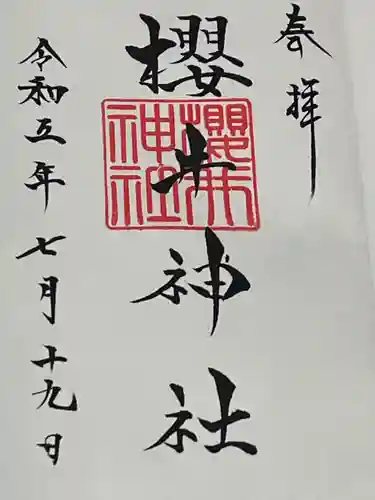 奉拝
櫻井神社
櫻井
神社
令和五年七月十九日